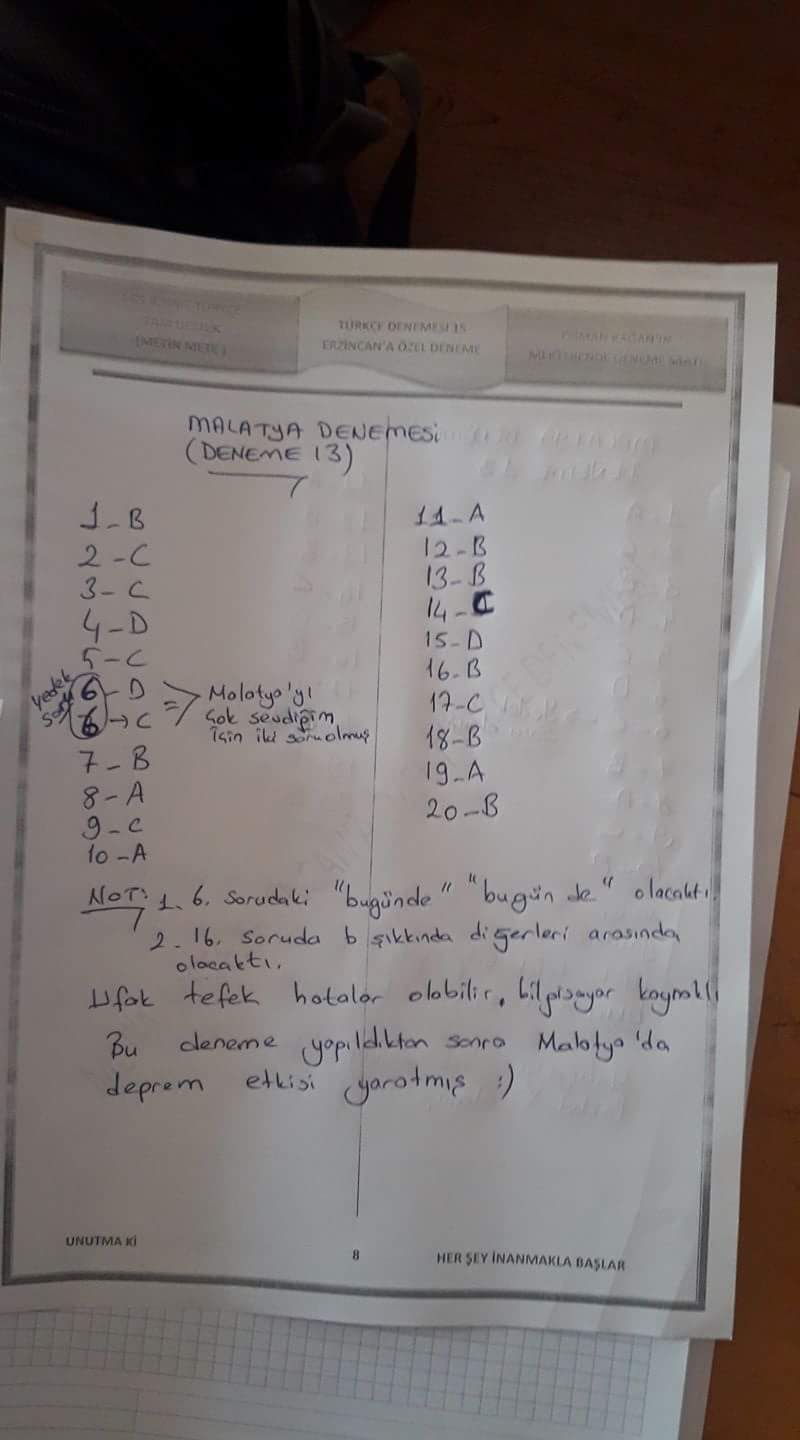 (METİN METE)
TÜRKÇE DENEMESİ 15
ERZİNCAN'A ÖZEL DENEME
MALATYA DENEMESİ
(DENEME 13)
1-B
2-C
3-C
4-D
5-C
yedek soru
6-D
6→C
=> Malatya'yı
çok sevdiğim
için iki soru olmuş
7-B
8-A
9-C
10-A
11-A
12-B
13-B
14-C
15-D
16-B
17-C
18-B
19-A
20-B
NOT: 1. 6. Sorudaki "bugünde" "bugün de" olacaktı.
2. 16. soruda b şıkkında diğerleri arasında
olacaktı.
Ufak tefek hatalar olabilir, bilgisayar kaynaklı
Bu deneme yapıldıktan sonra Malatya'da
deprem etkisi yaratmış :)
UNUTMA Kİ
8
HER ŞEY İNANMAKLA BAŞLAR